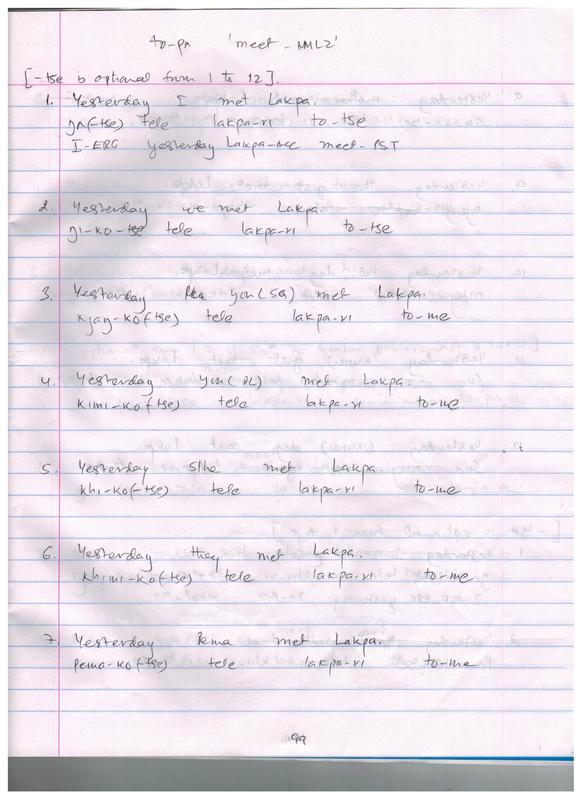 to-pa 'meet-NML2'
[-tse is optional from 1 to 12].
1. Yesterday I met Lakpa.
ŋʌ(-tse) tele lakpa-ri to-tse
I-ERG yesterday Lakpa-ACC meet-PST
2. Yesterday we met Lakpa
ŋi-ko-tse tele lakpa-ri to-tse
3. Yesterday you (SG) met Lakpa.
kjaŋ-ko(-tse) tele lakpa-ri to-me
4. Yesterday you (PL) met Lakpa.
kimi-ko(-tse) tele lakpa-ri to-me
5. Yesterday S/he met Lakpa.
khi-ko(-tse) tele lakpa-ri to-me
6. Yesterday they met Lakpa.
khimi-ko(-tse) tele lakpa-ri to-me
7. Yesterday Pema met Lakpa.
pema-ko(-tse) tele lakpa-ri to-me
99